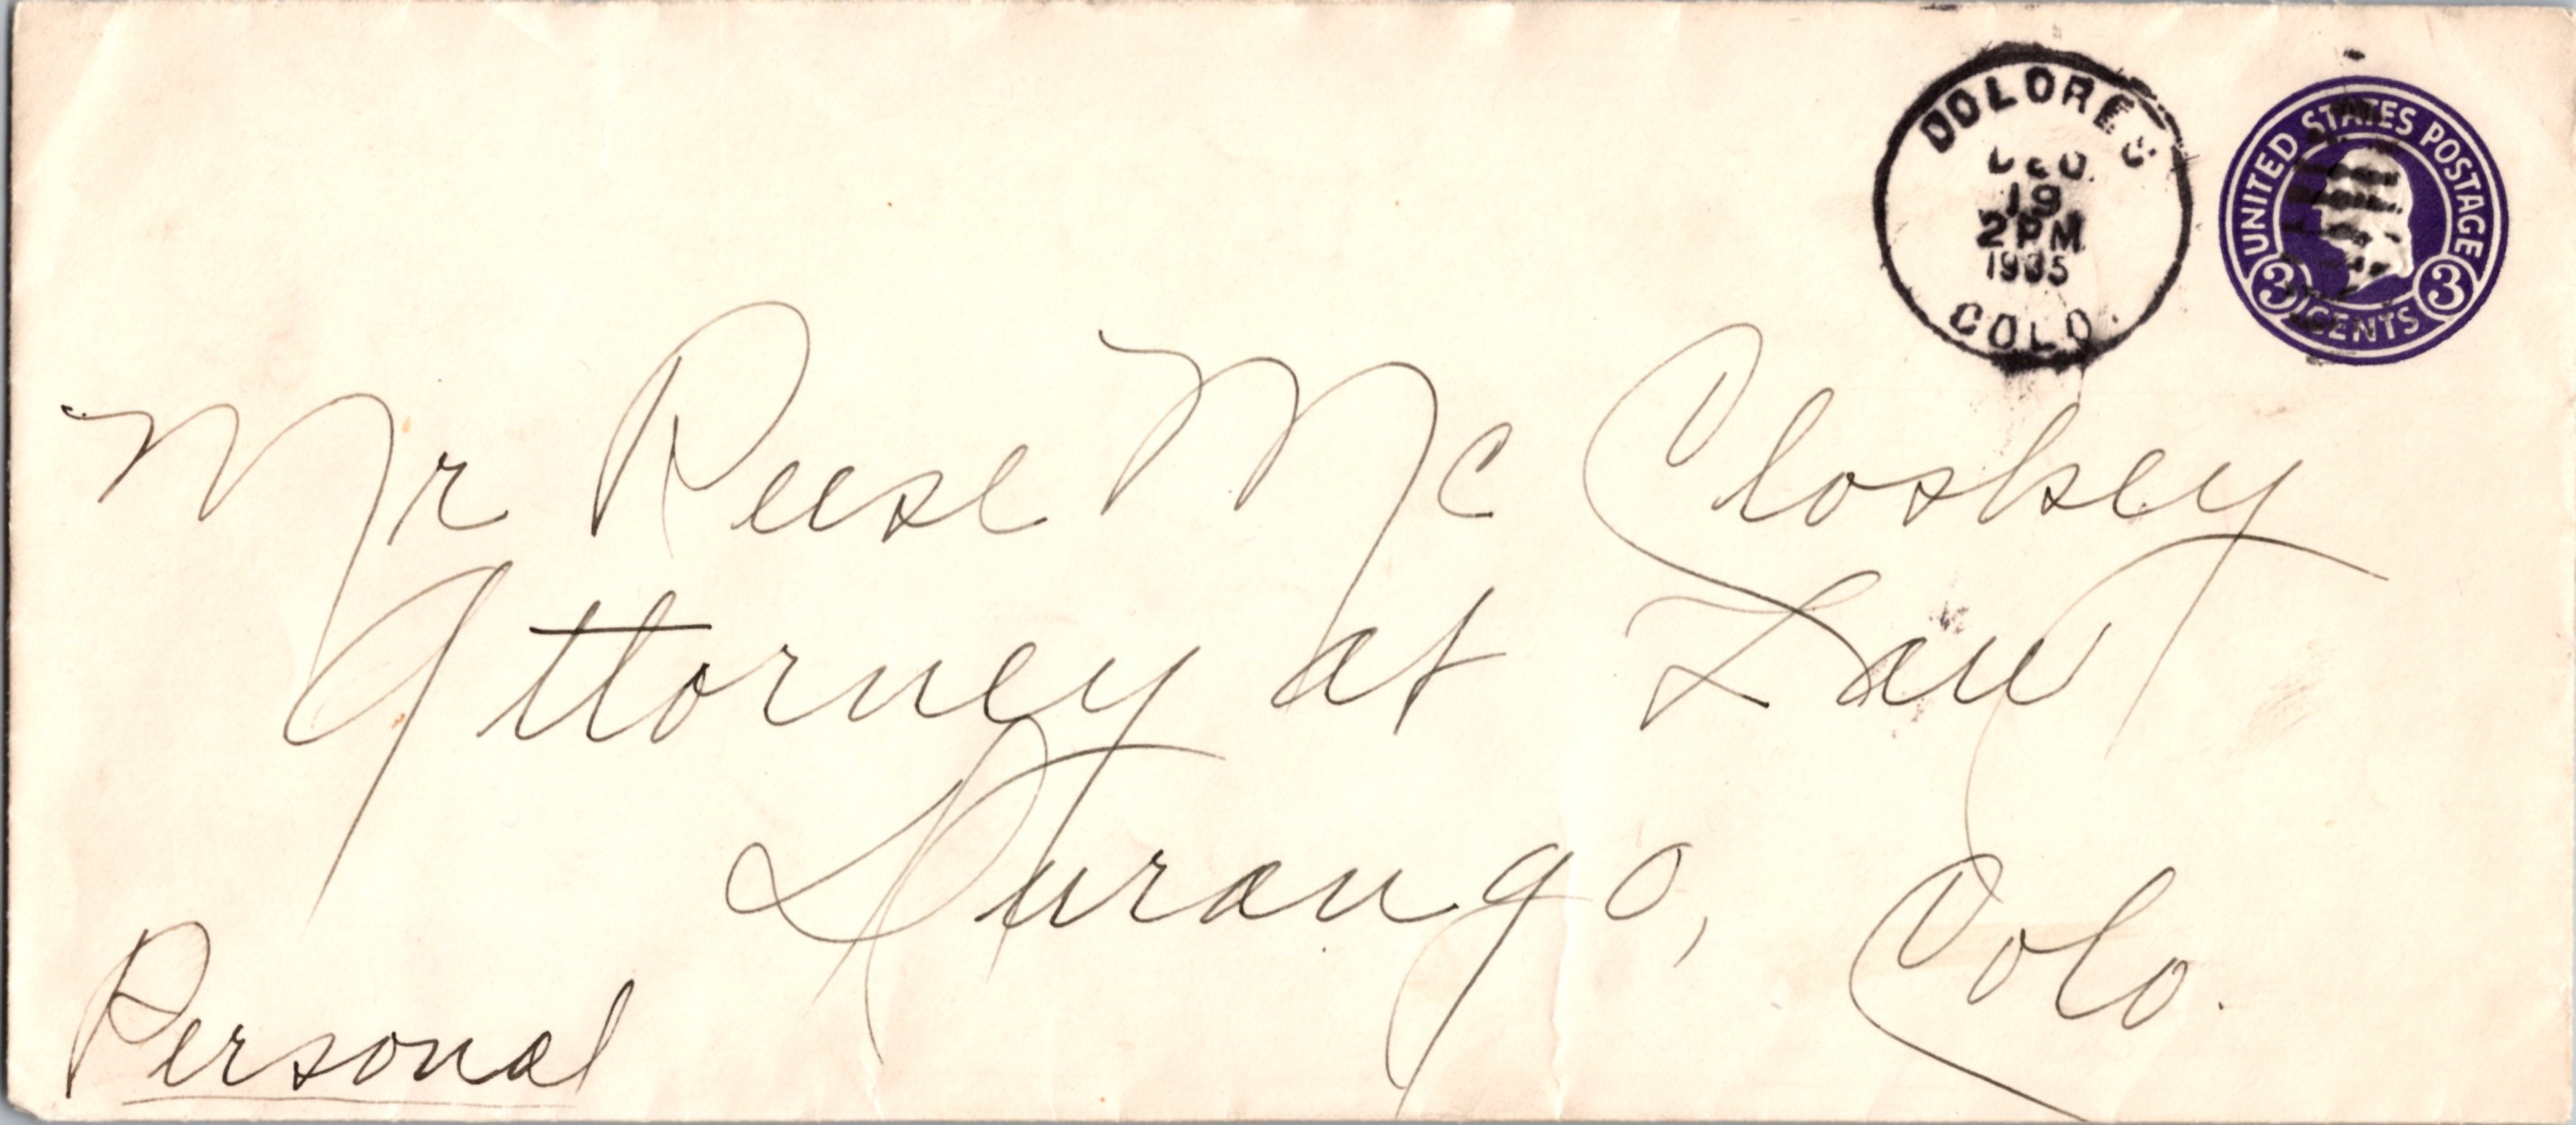 DOLORES
DEC
19
2 PM
1935
COLO.
UNITED STATES POSTAGE
3 CENTS 3
Mr Reese McCloskey
Attorney at Law
Durango, Colo.
Personal